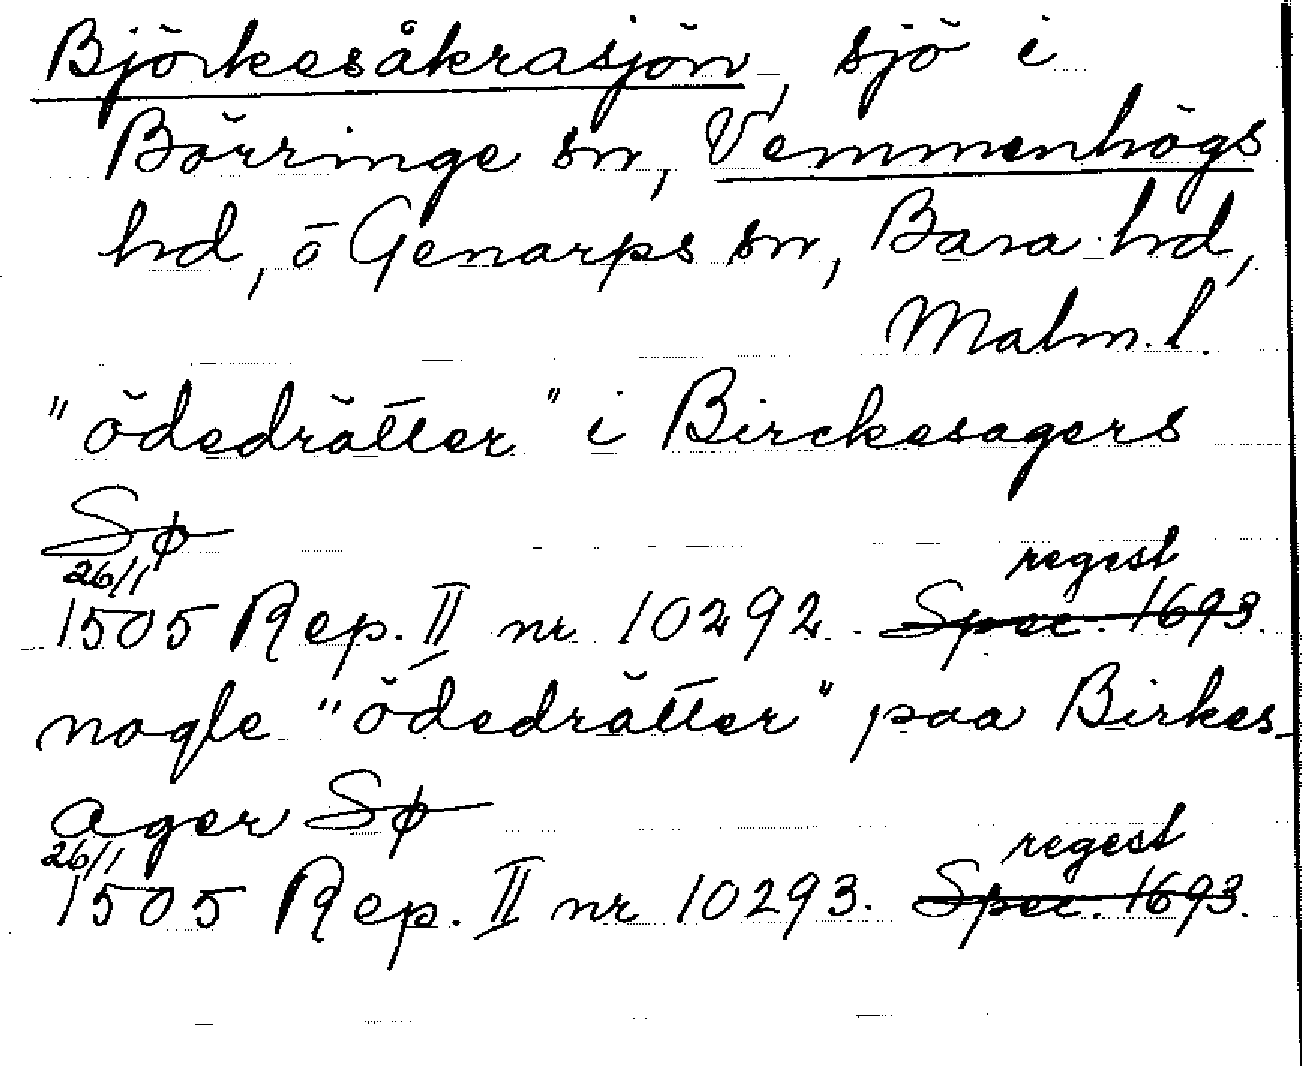 Björkesåkrasjön, sjö i
Börringe sn, Vemmenhögs
hd, ö Genarps sn, Bara hd,
Malm. l.
"ödedrätter" i Birckesagers
Sø
26/1
regest
1505 Rep. II nr 10292. Spec. 1693.
nogle "ödedrätter" paa Birkes-
ager Sø
26/1
regest
1505 Rep. II nr 10293. Spec. 1693.